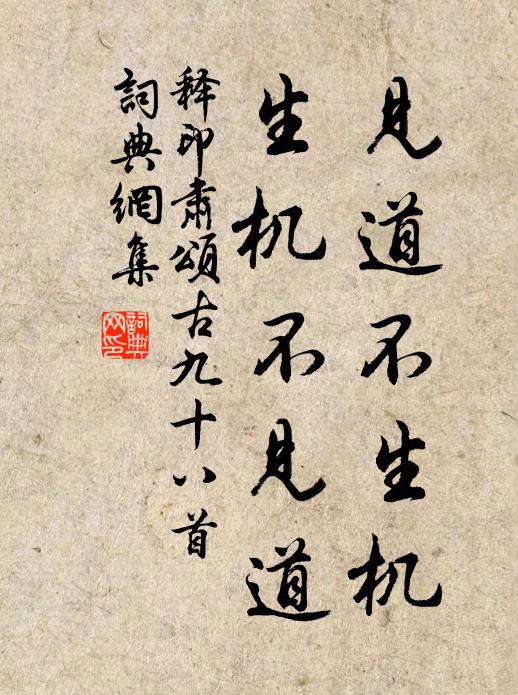 見道不生机
生机不見道
釋印肅頌古九十八首
詞典網集
詞典
网印